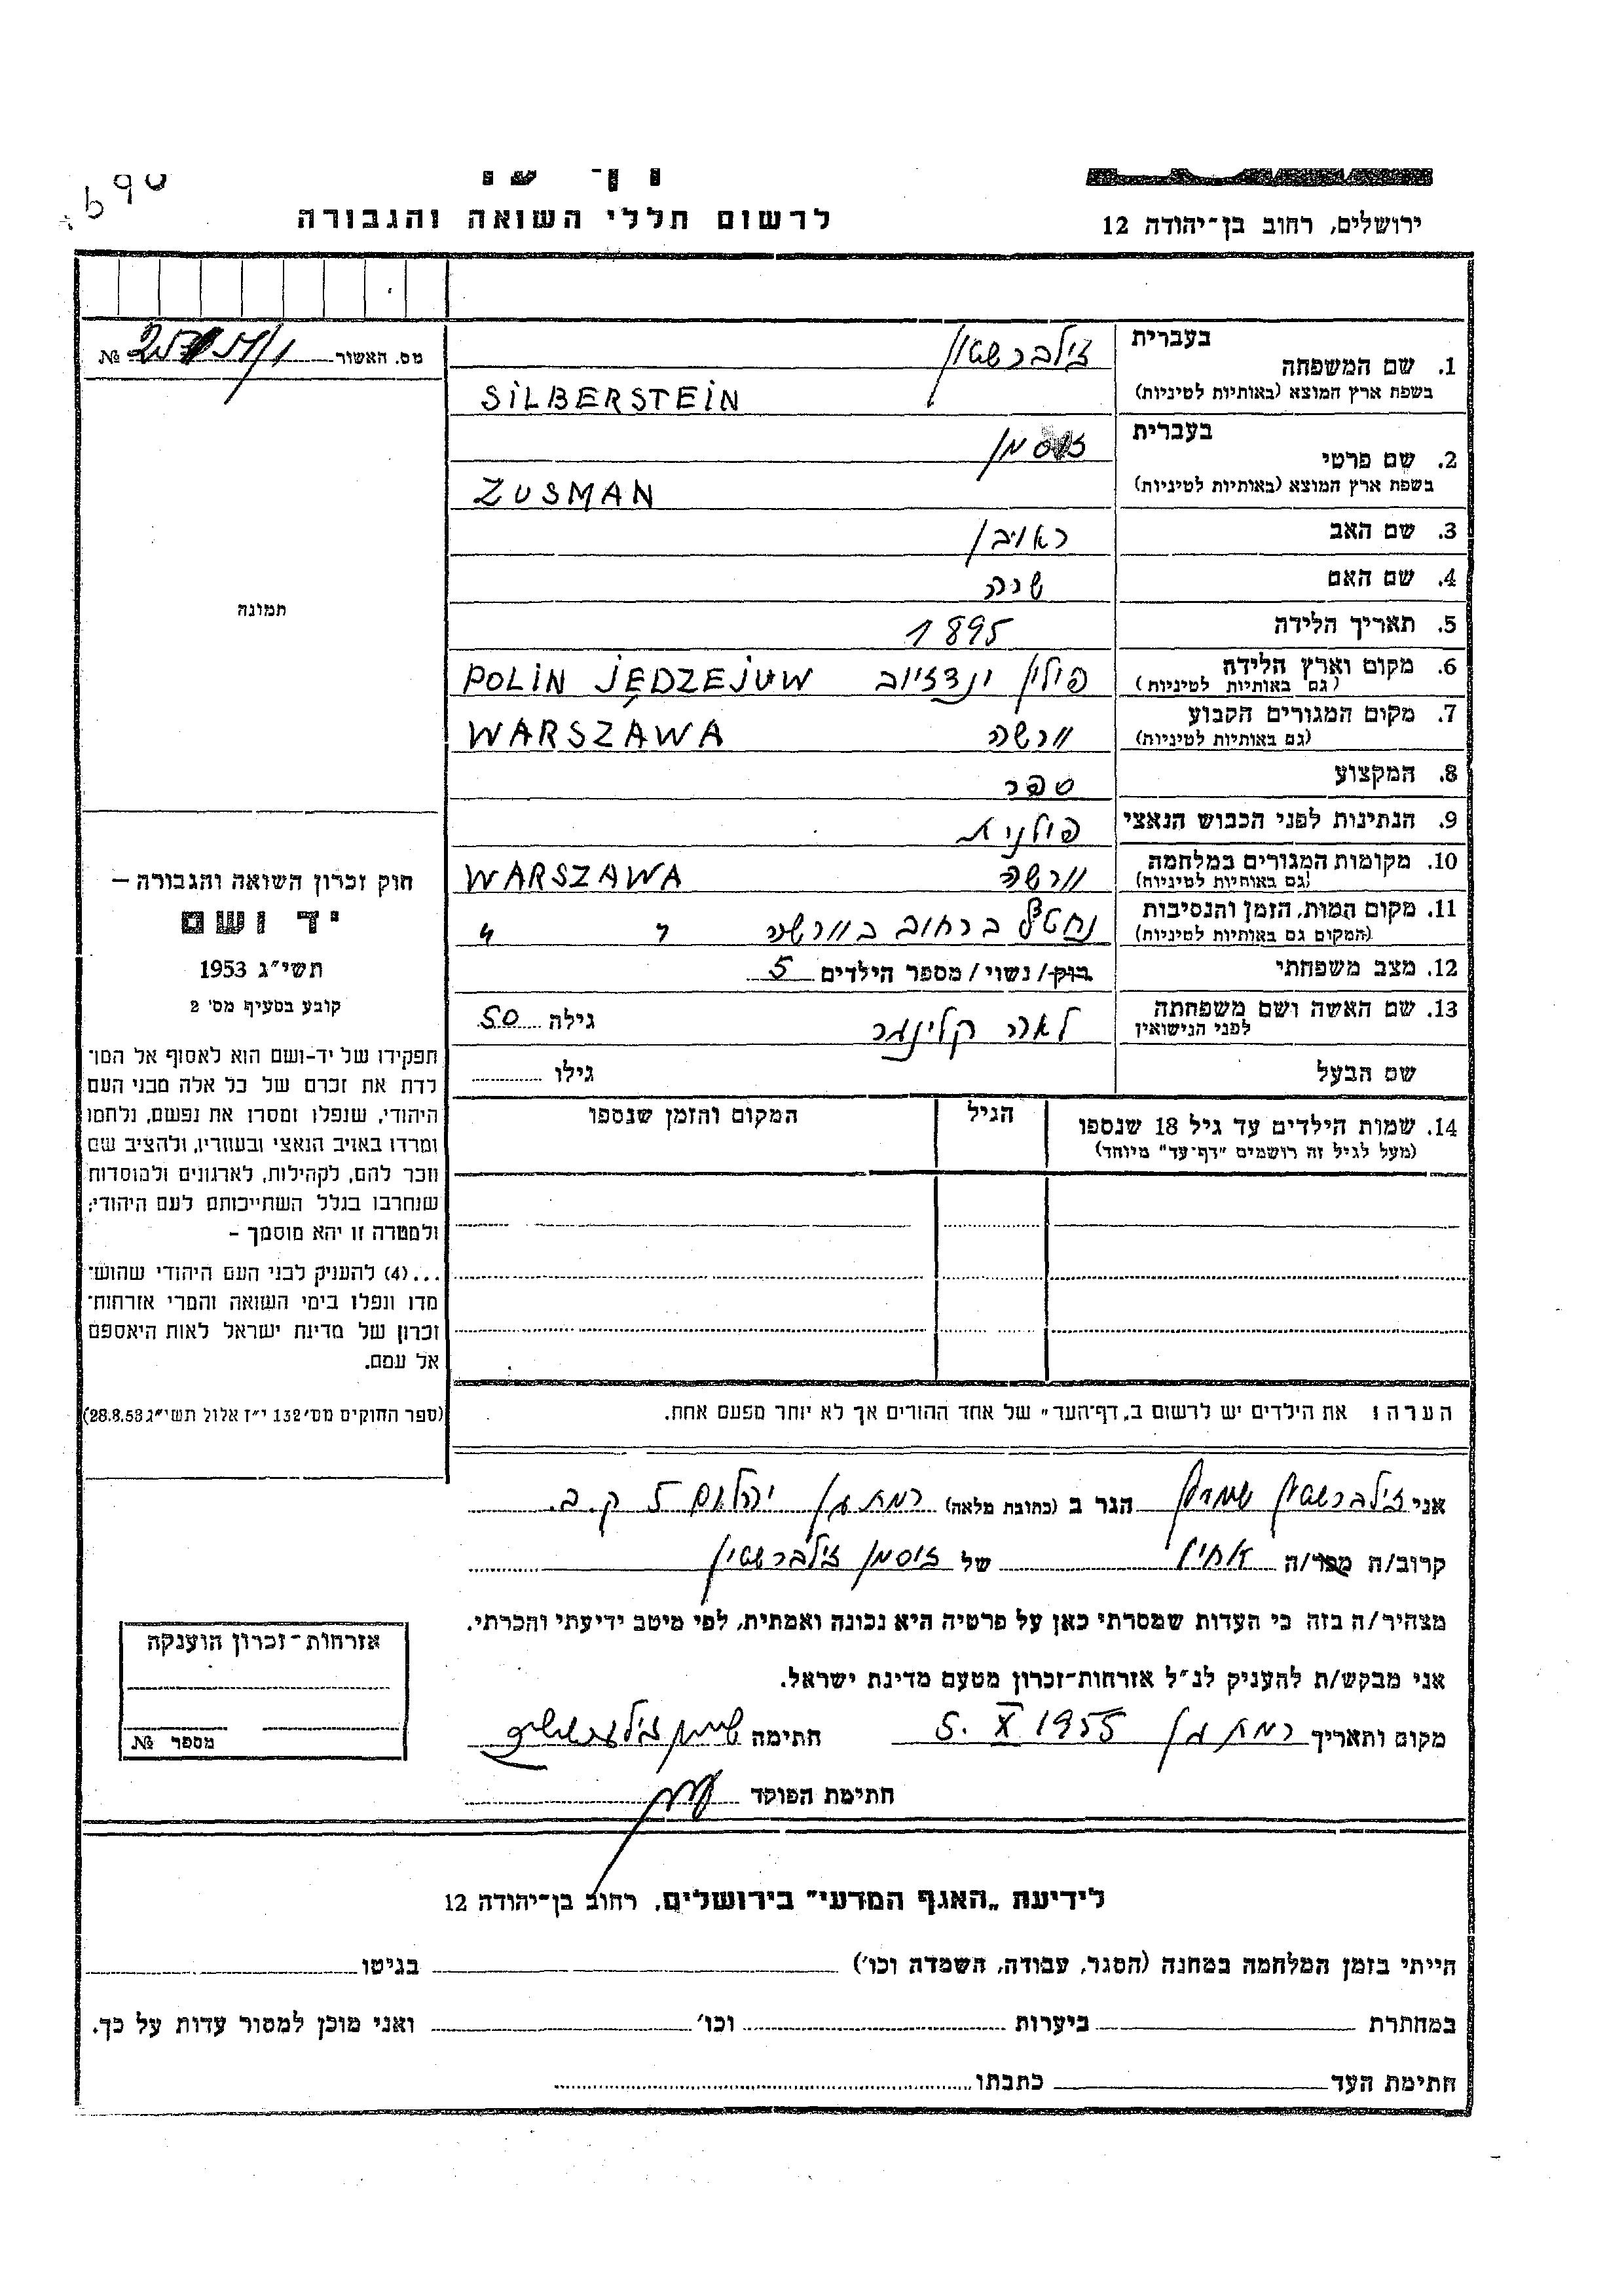 ירושלים, רחוב בן־יהודה 12
לרשום חללי השואה והגבורה
מס. האשור №
בעברית זילברשטיין
1. שם המשפחה
בשפת ארץ המוצא (באותיות לטיניות) SILBERSTEIN
בעברית זוסמן
2. שם פרטי
בשפת ארץ המוצא (באותיות לטיניות) ZUSMAN
3. שם האב ראובן
4. שם האם שרה
5. תאריך הלידה 1895
6. מקום וארץ הלידה (גם באותיות לטיניות) פולין ינדזיוב POLIN JĘDZEJUW
7. מקום המגורים הקבוע (גם באותיות לטיניות) וורשה WARSZAWA
8. המקצוע ספר
9. הנתינות לפני הכבוש הנאצי פולנית
10. מקומות המגורים במלחמה (גם באותיות לטיניות) וורשה WARSZAWA
11. מקום המות, הזמן והנסיבות (המקום גם באותיות לטיניות) ברחוב בוורשה
12. מצב משפחתי רוק/נשוי/מספר הילדים 5
13. שם האשה ושם משפחתה לפני הנישואין לאה קלינגר גילה 50
שם הבעל גילו
14. שמות הילדים עד גיל 18 שנספו הגיל המקום והזמן שנספו
(מעל לגיל זה רושמים "דף־עד" מיוחד)
הערה: את הילדים יש לרשום ב„דף־העד" של אחד ההורים אך לא יותר מפעם אחת.
תמונה
חוק זכרון השואה והגבורה –
יד ושם
תשי״ג 1953
קובע בסעיף מס' 2
תפקידו של יד-ושם הוא לאסוף אל המו־
לדת את זכרם של כל אלה מבני העם
היהודי, שנפלו ומסרו את נפשם, נלחמו
ומרדו באויב הנאצי ובעוזריו, ולהציב שם
וזכר להם, לקהילות, לארגונים ולמוסדות
שנחרבו בגלל השתייכותם לעם היהודי;
ולמטרה זו יהא מוסמך –
...(4) להעניק לבני העם היהודי שהוש־
מדו ונפלו בימי השואה והמרי אזרחות־
זכרון של מדינת ישראל לאות היאספם
אל עמם.
(ספר החוקים מס׳ 132 י״ז אלול תשי״ג 28.8.53)
אני זילברשטיין שמעון הגר ב (כתובת מלאה) רמת גן יהלום 5 ק.ב.
קרוב/ה מכר/ה אחיו של זוסמן זילברשטיין
מצהיר/ה בזה כי העדות שמסרתי כאן על פרטיה היא נכונה ואמתית, לפי מיטב ידיעתי והכרתי.
אני מבקש/ת להעניק לנ״ל אזרחות־זכרון מטעם מדינת ישראל.
מקום ותאריך רמת גן 5. X 1955 חתימה שמעון זילברשטיין
חתימת הפוקד
אזרחות־זכרון הוענקה
מספר №
לידיעת „האגף המדעי" בירושלים, רחוב בן־יהודה 12
הייתי בזמן המלחמה במחנה (הסגר, עבודה, השמדה וכו׳) בגיטו
במחתרת ביערות וכו׳ ואני מוכן למסור עדות על כך.
חתימת העד כתבתו